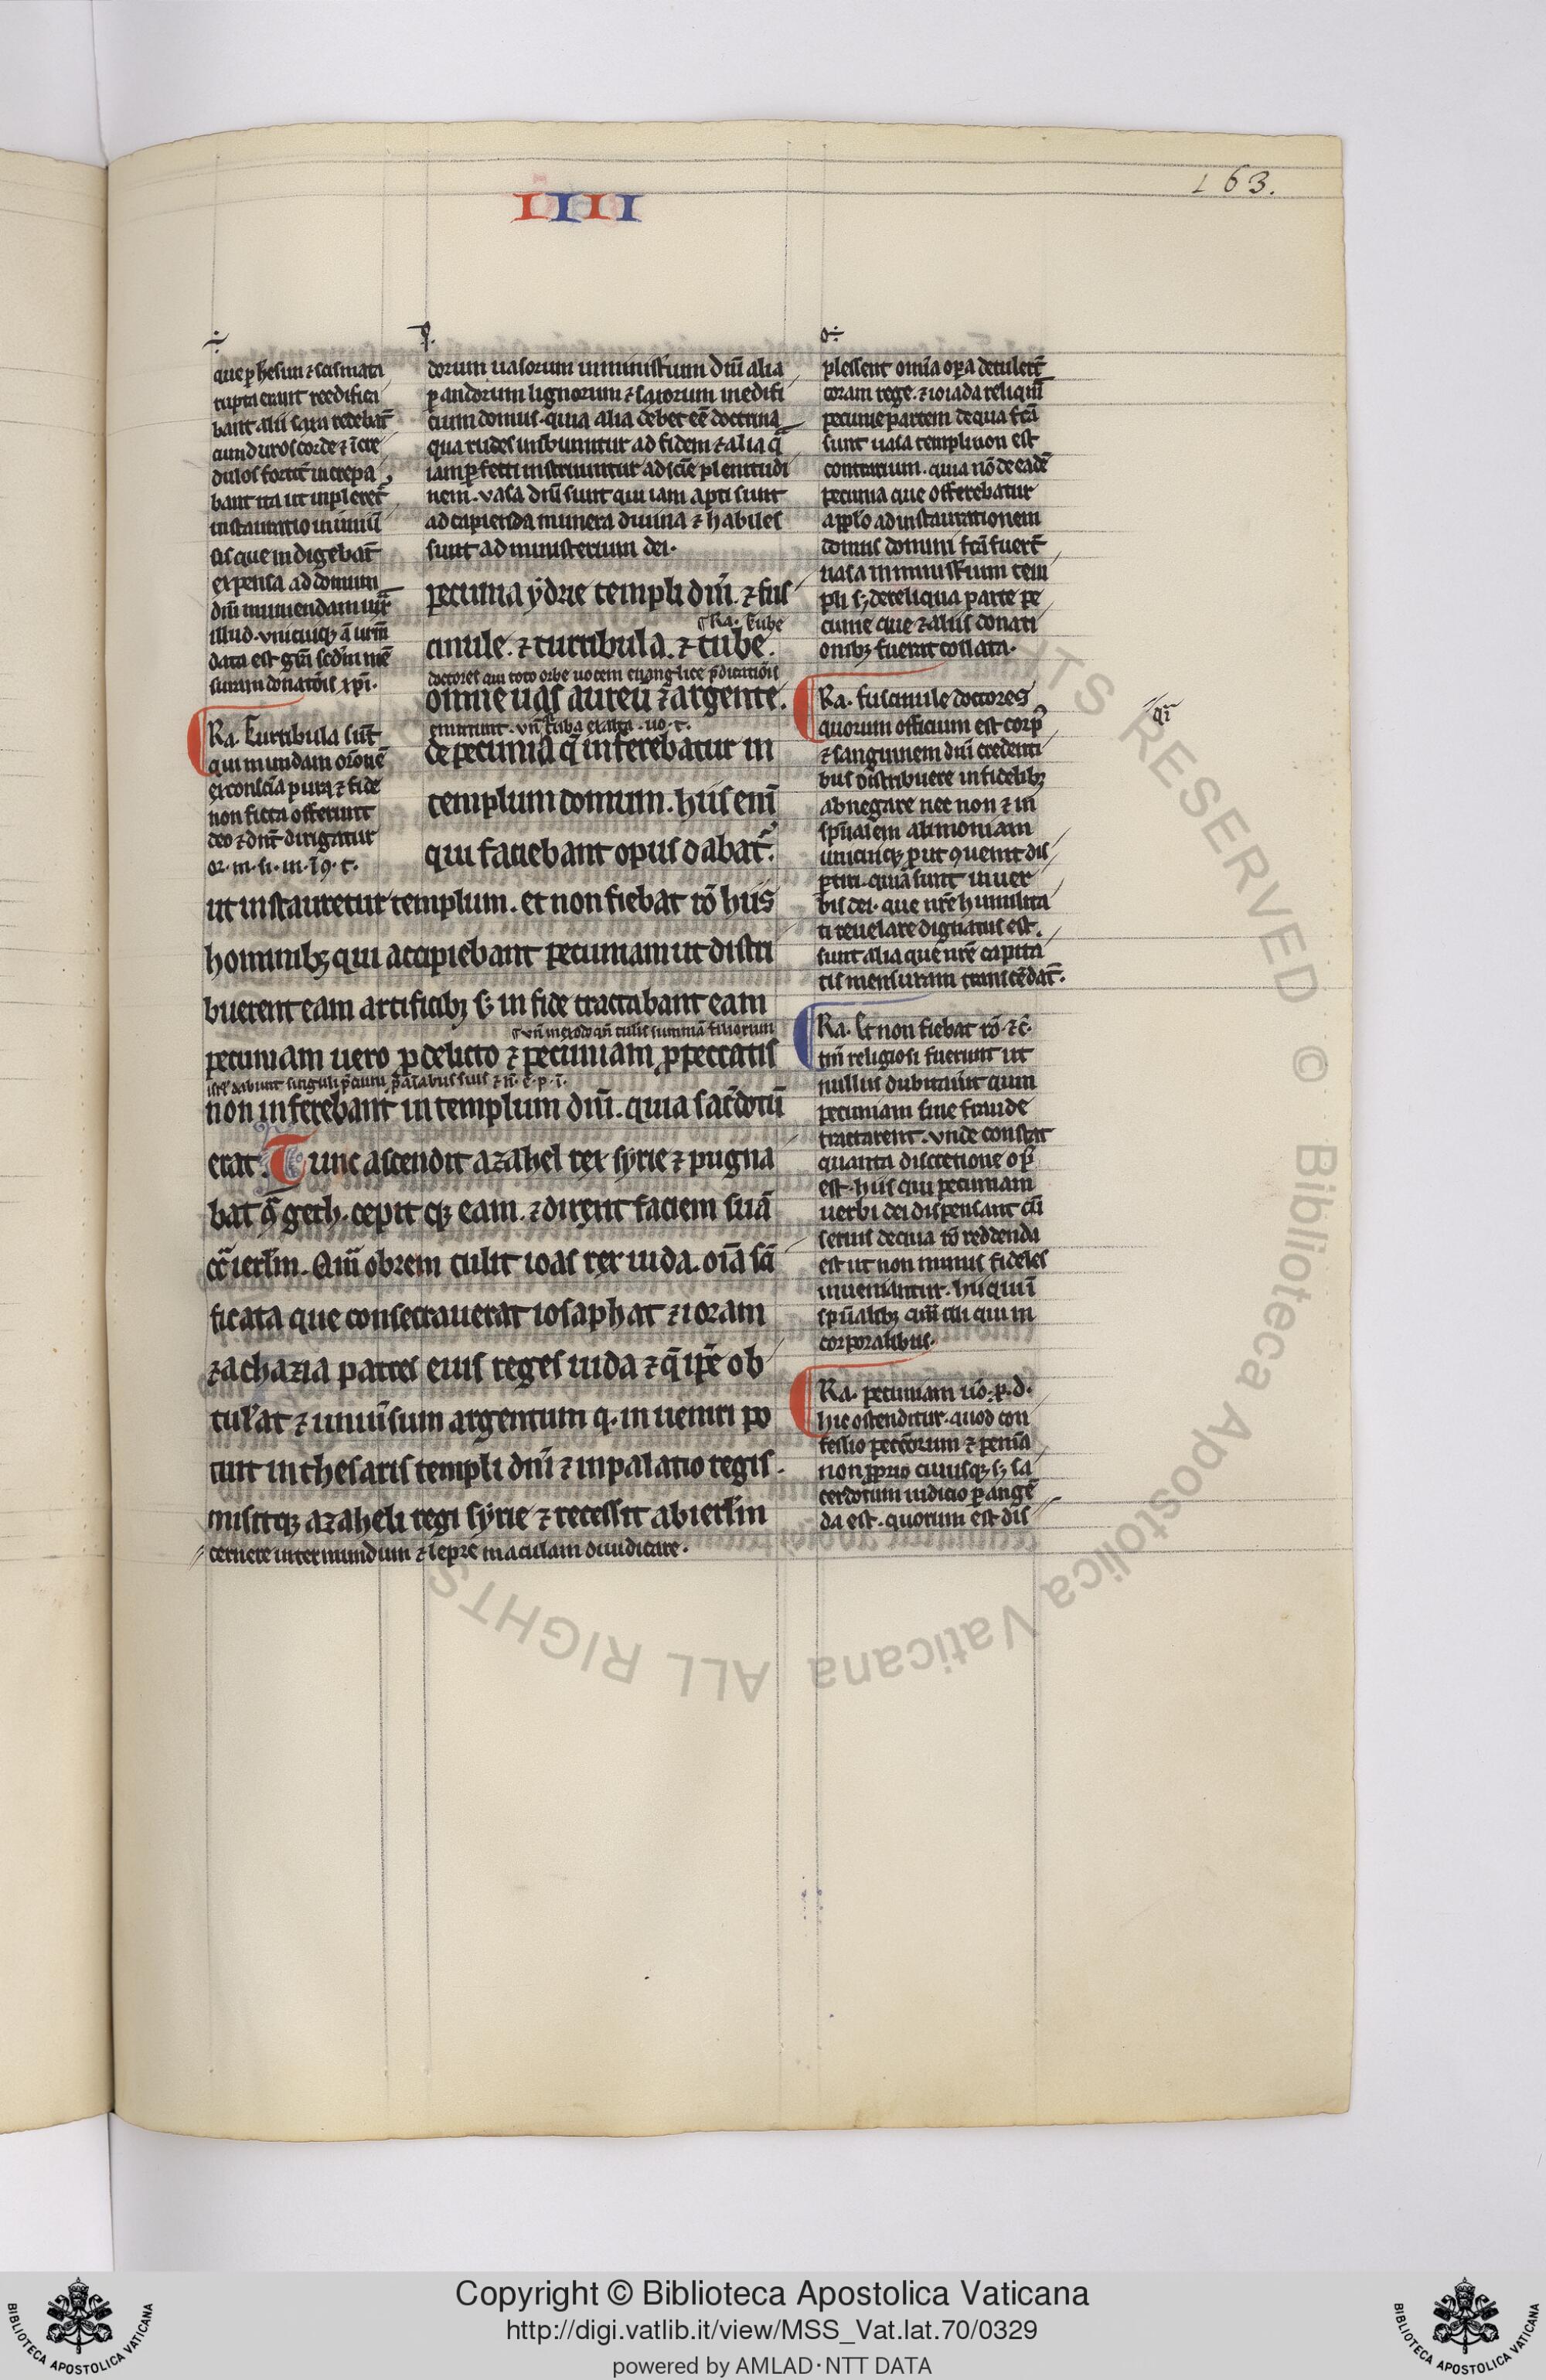 IIII
163.
que p hesim ⁊ scismata
rupta erant reedifica
bant alii saxa cedebāt
dulos fortit̄ increpa
bant ita ut impleret᷑
expensa ad domum
dn̄i muniendam iux̄
data est gr̄a scdm̄ mē
suram donatōis xp̄i.
Ra. Turribula sūt
qui mundam or̄onē
ex consciā pura ⁊ fide
non ficta offerunt
deo ⁊ dn̄t dirigatur
or. m. si. in. ī ꝯ. t.
dorum uasorum in minist̄ium dn̄i alia
ꝑandorum lignorum ⁊ saxorum in edifi
cium domus. quia alia debet eē doctrina
qua rudes imbuuntur ad fidem ⁊ alia q̄
iam ꝑfecti instruuntur ad sciē plenitudi
nem. vasa dn̄i sunt qui iam apti sunt
ad capienda munera diuina ⁊ habiles
sunt ad ministerium dei.
pecunia ydrie templi dn̄i. ⁊ fus
Ra. Tube
cinule. ⁊ turribula. ⁊ tube.
doctores qui toto orbe uocem euanglice p̄dicatiōis
omne uas aureū ⁊ argente.
emittunt. vn̄ t̄uba exalta. uo. t.
de pecunia q̄ inferebatur in
templum domini. hiis enī
qui faciebant opus dabat᷑.
ut instauretur templum. et non fiebat rō hiis
hominibꝫ qui accipiebant pecuniam ut distri
buerent eam artificibꝫ ſꝫ in fide tractabant eam
vn̄ in exodo qn̄ tulis summā filiorum
pecuniam uero ꝓ delicto ⁊ pecuniam ꝓ peccatis
isrl̄ dabunt singuli p̄cium ꝓ aīabus suis ⁊ n̄. c̄. p. ī.
non inferebant in templum dn̄i. quia sac̄dotū
erat. Tunc ascendit azahel rex syrie ⁊ pugna
bat ꝯ̄ geth. cepit qꝫ eam. ⁊ direxit faciem suā
ꝯ̄ ierl̄m. Quā obrem tulit ioas rex iuda. oīa sc̄i
ficata que consecrauerat iosaphat ⁊ ioram
⁊ achazia patres eius reges iuda ⁊ q̄ ip̄e ob
tul̄at ⁊ uniu̅sum argentum q. inueniri po
tuit in thesaris templi dn̄i ⁊ in palatio regis.
misitqꝫ azaheli regi syrie ⁊ recessit ab ierl̄m
cernere inter mundum ⁊ lepre maculam diiudicare.
plessent omīa oꝑa detulerт̄
coram rege. ⁊ ioiada reliquā
pecunie partem de qua fc̄a
sunt uasa templi non est
contrarium. quia nō de eadē
pecunia que offerebatur
a pplo ad instaurationem
domus domini fc̄a fuerт̄
uasa in minist̄ium tem
pli ſꝫ de reliqua parte pe
cunie que ⁊ aliis donati
onibꝫ fuerat collata.
Ra. fuscinule doctores
quorum officium est corpꝰ
⁊ sanguinem dn̄i credenti
bus distribuere infidelibꝫ
abnegare nec non ⁊ in
sp̄ualem alimoniam
unicuiqꝫ ꝓut ꝯuenit dis
ꝑtiri. quia sunt in uer
bis dei. que nr̄e humilita
ti reuelare dignatus est.
sunt alia que nr̄e capita
q̄i
Ra. Et non fiebat rō. ⁊ c̄.
tm̄ religiosi fuerunt ut
nullus dubitaūit quin
pecuniam sine fraude
tractarent. vnde constat
quanta discretione opꝰ
est. hiis qui pecuniam
uerbi dei dispensant cū
seruis de qua rō reddenda
est ut non minus fideles
inueniantur. hii qui ī
sp̄ualibꝫ qm̄ illi qui in
corporalibus.
Ra. pecuniam uō. p. d.
hic ostenditur. quod con
fessio peccōrum ⁊ penīa
non ꝓprio cuiusqꝫ ſꝫ sa
cerdotum iudicio ꝑagen
da est. quorum est dis
Copyright © Biblioteca Apostolica Vaticana
http://digi.vatlib.it/view/MSS_Vat.lat.70/0329
powered by AMLAD·NTT DATA
BIBLIOTECA APOSTOLICA VATICANA
BIBLIOTECA APOSTOLICA VATICANA
© Biblioteca Apostolica Vaticana ALL RIGHTS RESERVED